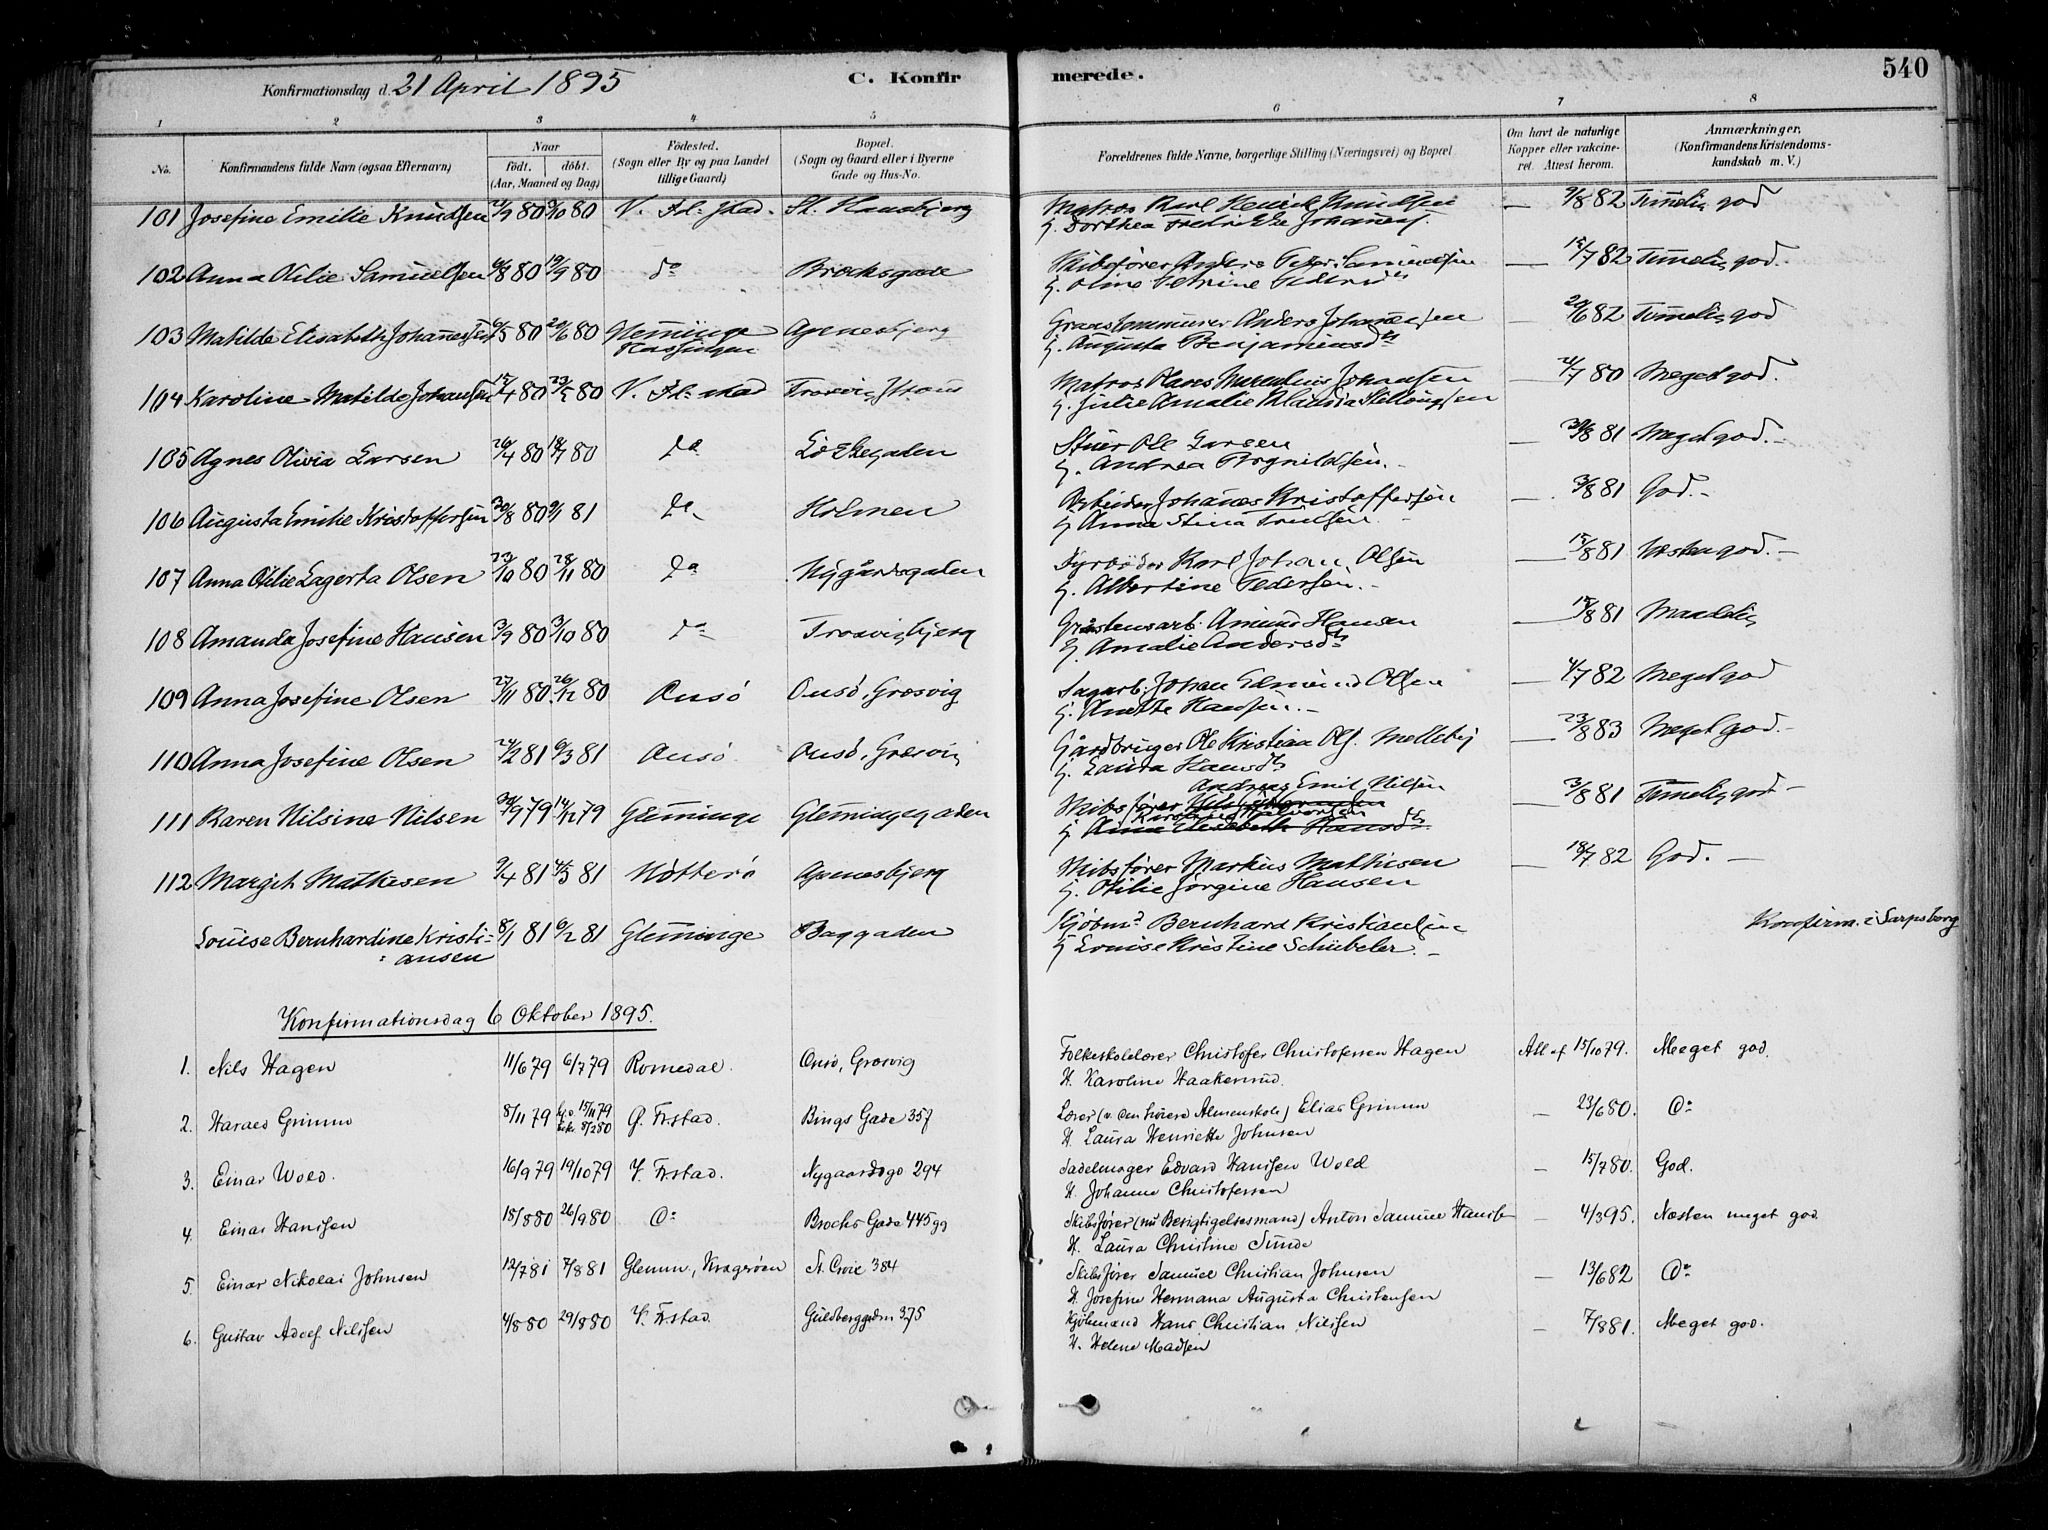 540
Konfirmationsdag d. 21 April 1895 C. Konfirmerede.
1 2 3 4 5 6 7 8
No. Konfirmandens fulde Navn (ogsaa Efternavn) Naar født. døbt. (Aar, Maaned og Dag) Fødested. (Sogn eller By og paa Landet tillige Gaard) Bopæl. (Sogn og Gaard eller i Byerne Gade og Hus-No. Forældrenes fulde Navne, borgerlige Stilling (Næringsvei) og Bopæl Om havt de naturlige Kopper eller vakcineret. Attest herom. Anmærkninger, (Konfirmandens Kristendomskundskab m. V.)
101 Josefine Emilie Knudsen 80 /10 80 V. Fr.stad. St. Hansbjerg Matros Karl Henrik Knudsen — /8 82 Temmelig god
H. Dorthea Fredrikke Johannes.
102 Anna Otilie Samuelsen 6/8 80 19/9 80 do Brochsgade Skibsfører Anders Peter Samuelsen — 15/7 82 Temmelig god.
H. Oline Petrine Pedersdt
103 Matilde Elisabeth Johannessen /5 80 20/6 80 Glemminge Apenesbjerg Anders Johannessen — 20/6 82 Temmelig god
H. Augusta Benjaminsdt
104 Karoline Matilde Johansen 15/4 80 23/5 80 V. Fr.stad Trosvig Matros Johansen — /7 80 Meget god.
H. Julie Amalie
105 Agnes Olivia Larsen 26/4 80 18/7 80 do Løkkegaden Stuer Ole Larsen — 30/8 81 Meget god.
H. Andrea Bognildsen.
106 Augusta Emilie Kristoffersen 20/8 80 9/1 81 do Holmen Arbeider Johannes Kristoffersen — 3/8 81 God.
H. Anna Stina
107 Anna Otilie Lagerta Olsen 23/10 80 28/11 80 do Nygårdsgaden Fyrbøder Karl Johan Olsen — 15/8 81 Næsten god.
H. Albertine Pedersen.
108 Amanda Josefine Hansen 3/9 80 3/10 80 do Trosvigbjerg Gråstensarb. Amund Hansen — 15/8 81 Maadelig
H. Amalie Andersdt
109 Anna Josefine Olsen 27/11 80 26/12 80 Onsø Onsø, Græsvig Sagarb. Johan Edmund Olsen — 4/7 82 Meget god
H. Anette Hansen.
110 Anna Josefine Olsen 24/2 81 6/3 81 Onsø Onsø, Græsvig Gårdbruger Ole Kristian Ols. Melleby — 23/8 83 Meget god.
H. Laura Hansdt
111 Karen Nilsine Nilsen 30/9 79 14/12 79 Glemminge Glemmingegaden Skibsfører Andreas Emil Nilsen — 3/8 81 Temmelig god
H. Anna Elisabeth Hansdt
112 Margith Mathisen 9/4 81 4/5 81 Nøtterø Apenesbjerg Skibsfører Markus Mathisen — 18/7 82 God.
H. Otilie Jørgine Hansen
Louise Bernhardine Kristi- 8/1 81 6/2 81 Glemminge Baggaden Kjøbmd Bernhard Kristiansen Konfirm. i Sarpsborg
ansen H Louise Kristine Schübeler.
Konfirmationsdag 6 Oktober 1895.
1. Nils Hagen 11/6 79 6/7 79 Romedal. Onsø, Græsvig Folkeskolelærer Christofer Christofersen Hagen Att. af 15/10 79. Meget god.
H. Karoline Haakenrud.
2. Harald Grimm 8/11 79 15/11 79 8/2 80 G. Fr.stad. Bings Gade 357 Lærer (v. den høiere Almenskole) Elias Grimm — 23/6 80. Do
H. Laura Henriette Johnsen
3. Einar Wold. 16/9 79 19/10 79 V. Fr.stad. Nygaardsgd 294 Sadelmager Edvard Hanssen Wold — 15/7 80. God.
H. Johanne Christofersen
4. Einar Hanssen 15/8 80 26/9 80 Do Brochs Gade 445 gg Skibsfører (nu Berigtigelsesmand) Anton Samuel Hanssen — 4/3 95. Næsten meget god.
H. Laura Christine Sunde
5. Einar Nikolai Johnsen 12/7 81 7/8 81 Glemm, Kragerøen St. Croix 384 Skibsfører Samuel Christian Johnsen — 13/6 82 Do
H. Josefine Hermana Augusta Christensen
6. Gustav Adolf Nilssen 4/8 80 29/8 80 V. Fr.stad. Guldberggdn 375 Kjøbmand Hans Christian Nilssen — 7/8 81. Meget god.
H. Helene Madsen